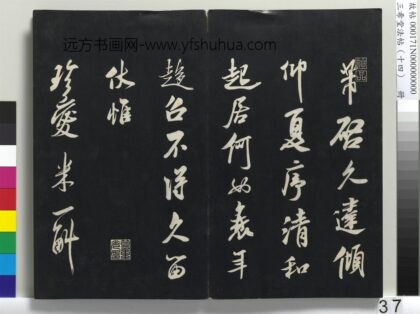 远方书画网-www.yfshuhua.com
故帖 000171N000000000
三希堂法帖（十四） 冊
芾啓久違傾
仰夏序清和
起居何如衰年
趨召不得久留
伏惟
珍愛米一斛
37